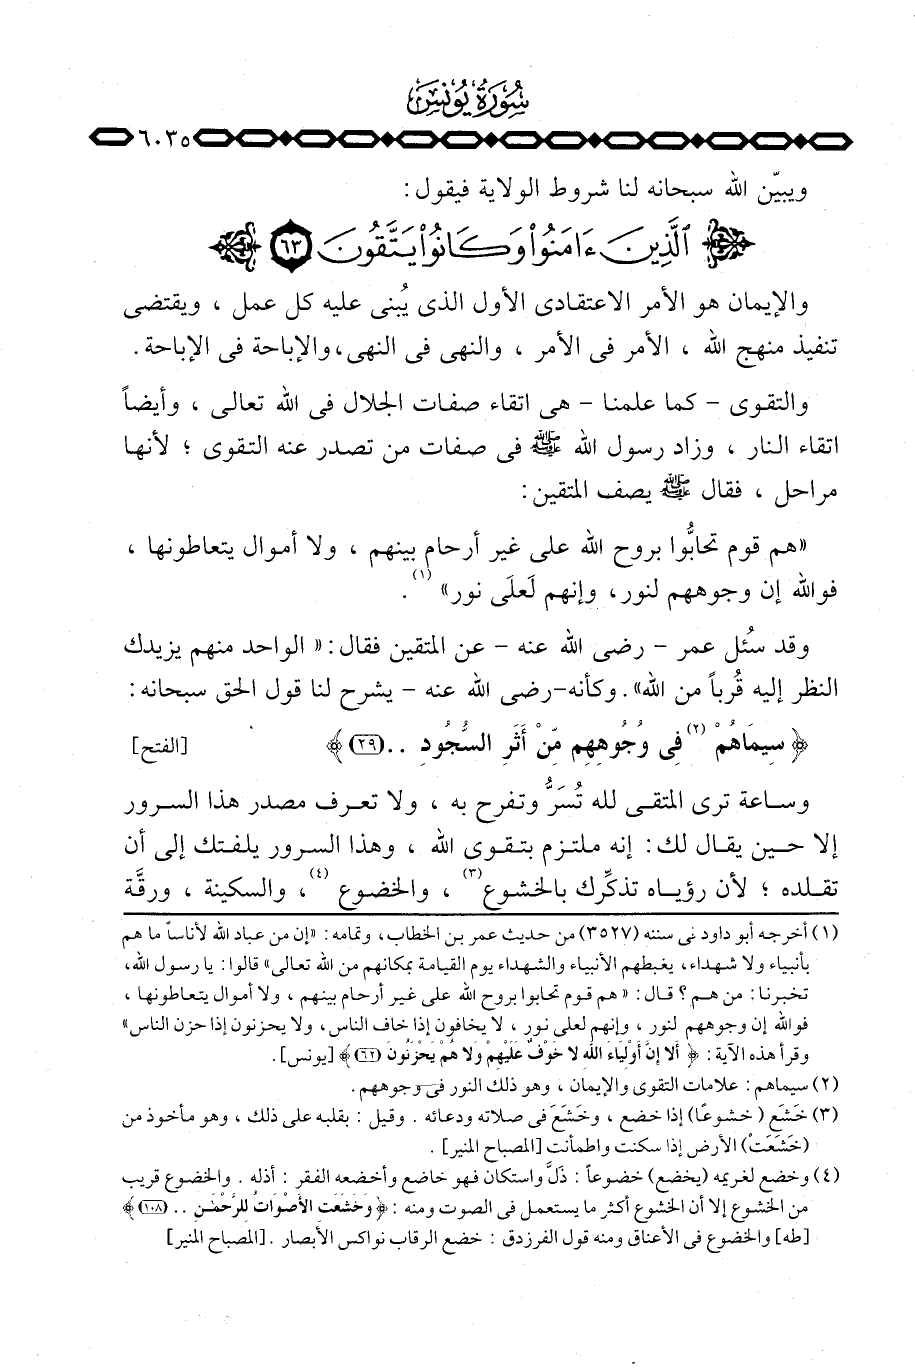 سُورَةُ يُونُسَ
٦٠٣٥
ويبيّن الله سبحانه لنا شروط الولاية فيقول :
ٱلَّذِينَ ءَامَنُوا۟ وَكَانُوا۟ يَتَّقُونَ ٦٣
والإيمان هو الأمر الاعتقادى الأول الذى يُبنى عليه كل عمل ، ويقتضى
تنفيذ منهج الله ، الأمر فى الأمر ، والنهى فى النهى، والإباحة فى الإباحة .
والتقوى - كما علمنا - هى اتقاء صفات الجلال فى الله تعالى ، وأيضاً
اتقاء النار ، وزاد رسول الله ﷺ فى صفات من تصدر عنه التقوى ؛ لأنها
مراحل ، فقال ﷺ يصف المتقين :
«هم قوم تحابُّوا بروح الله على غير أرحام بينهم ، ولا أموال يتعاطونها ،
فوالله إن وجوههم لنور، وإنهم لَعلَى نور» (١) .
وقد سُئل عمر - رضى الله عنه - عن المتقين فقال : « الواحد منهم يزيدك
النظر إليه قُرباً من الله». وكأنه-رضى الله عنه - يشرح لنا قول الحق سبحانه :
﴿ سِيمَاهُمْ (٢) فِى وُجُوهِهِم مِّنْ أَثَرِ السُّجُودِ .. (٢٩) ﴾ [الفتح]
وساعة ترى المتقى لله تُسَرُّ وتفرح به ، ولا تعرف مصدر هذا السرور
إلا حين يقال لك : إنه ملتزم بتقوى الله ، وهذا السرور يلفتك إلى أن
تقلده ؛ لأن رؤياه تذكِّرك بالخشوع (٣) ، والخضوع (٤) ، والسكينة ، ورقَّة
(١) أخرجه أبو داود نى سننه (٣٥٢٧) من حديث عمر بن الخطاب، وتمامه : «إن من عباد الله لأناساً ما هم
بأنبياء ولا شهداء، يغبطهم الأنبياء والشهداء يوم القيامة بمكانهم من الله تعالى» قالوا : يا رسول الله،
تخبرنا : من هم ؟ قال : « هم قوم تحابوا بروح الله على غير أرحام بينهم ، ولا أموال يتعاطونها ،
فوالله إن وجوههم لنور ، وإنهم لعلى نور ، لا يخافون إذا خاف الناس، ولا يحزنون إذا حزن الناس»
وقرأ هذه الآية : ﴿ أَلا إِنَّ أَوْلِيَاءَ اللَّهِ لا خَوْفٌ عَلَيْهِمْ وَلا هُمْ يَحْزَنُونَ (٦٢) ﴾ [يونس].
(٢) سيماهم : علامات التقوى والإيمان ، وهو ذلك النور فى وجوههم.
(٣) خَشَعَ ( خشوعًا) إذا خضع ، وخَشَعَ فى صلاته ودعائه . وقيل : بقلبه على ذلك ، وهو مأخوذ من
(خَشَعَتْ) الأرض إذا سكنت واطمأنت [المصباح المنير] .
(٤) وخضع لغريمه (يخضع) خضوعاً : ذلَّ واستكان فهو خاضع وأخضعه الفقر : أذله . والخضوع قريب
من الخشوع إلا أن الخشوع أكثر ما يستعمل فى الصوت ومنه : ﴿ وَخَشَعَتِ الأَصْوَاتُ لِلرَّحْمَـٰنِ .. (١٠٨) ﴾
[طه] والخضوع فى الأعناق ومنه قول الفرزدق : خضع الرقاب نواكس الأبصار . [المصباح المنير]